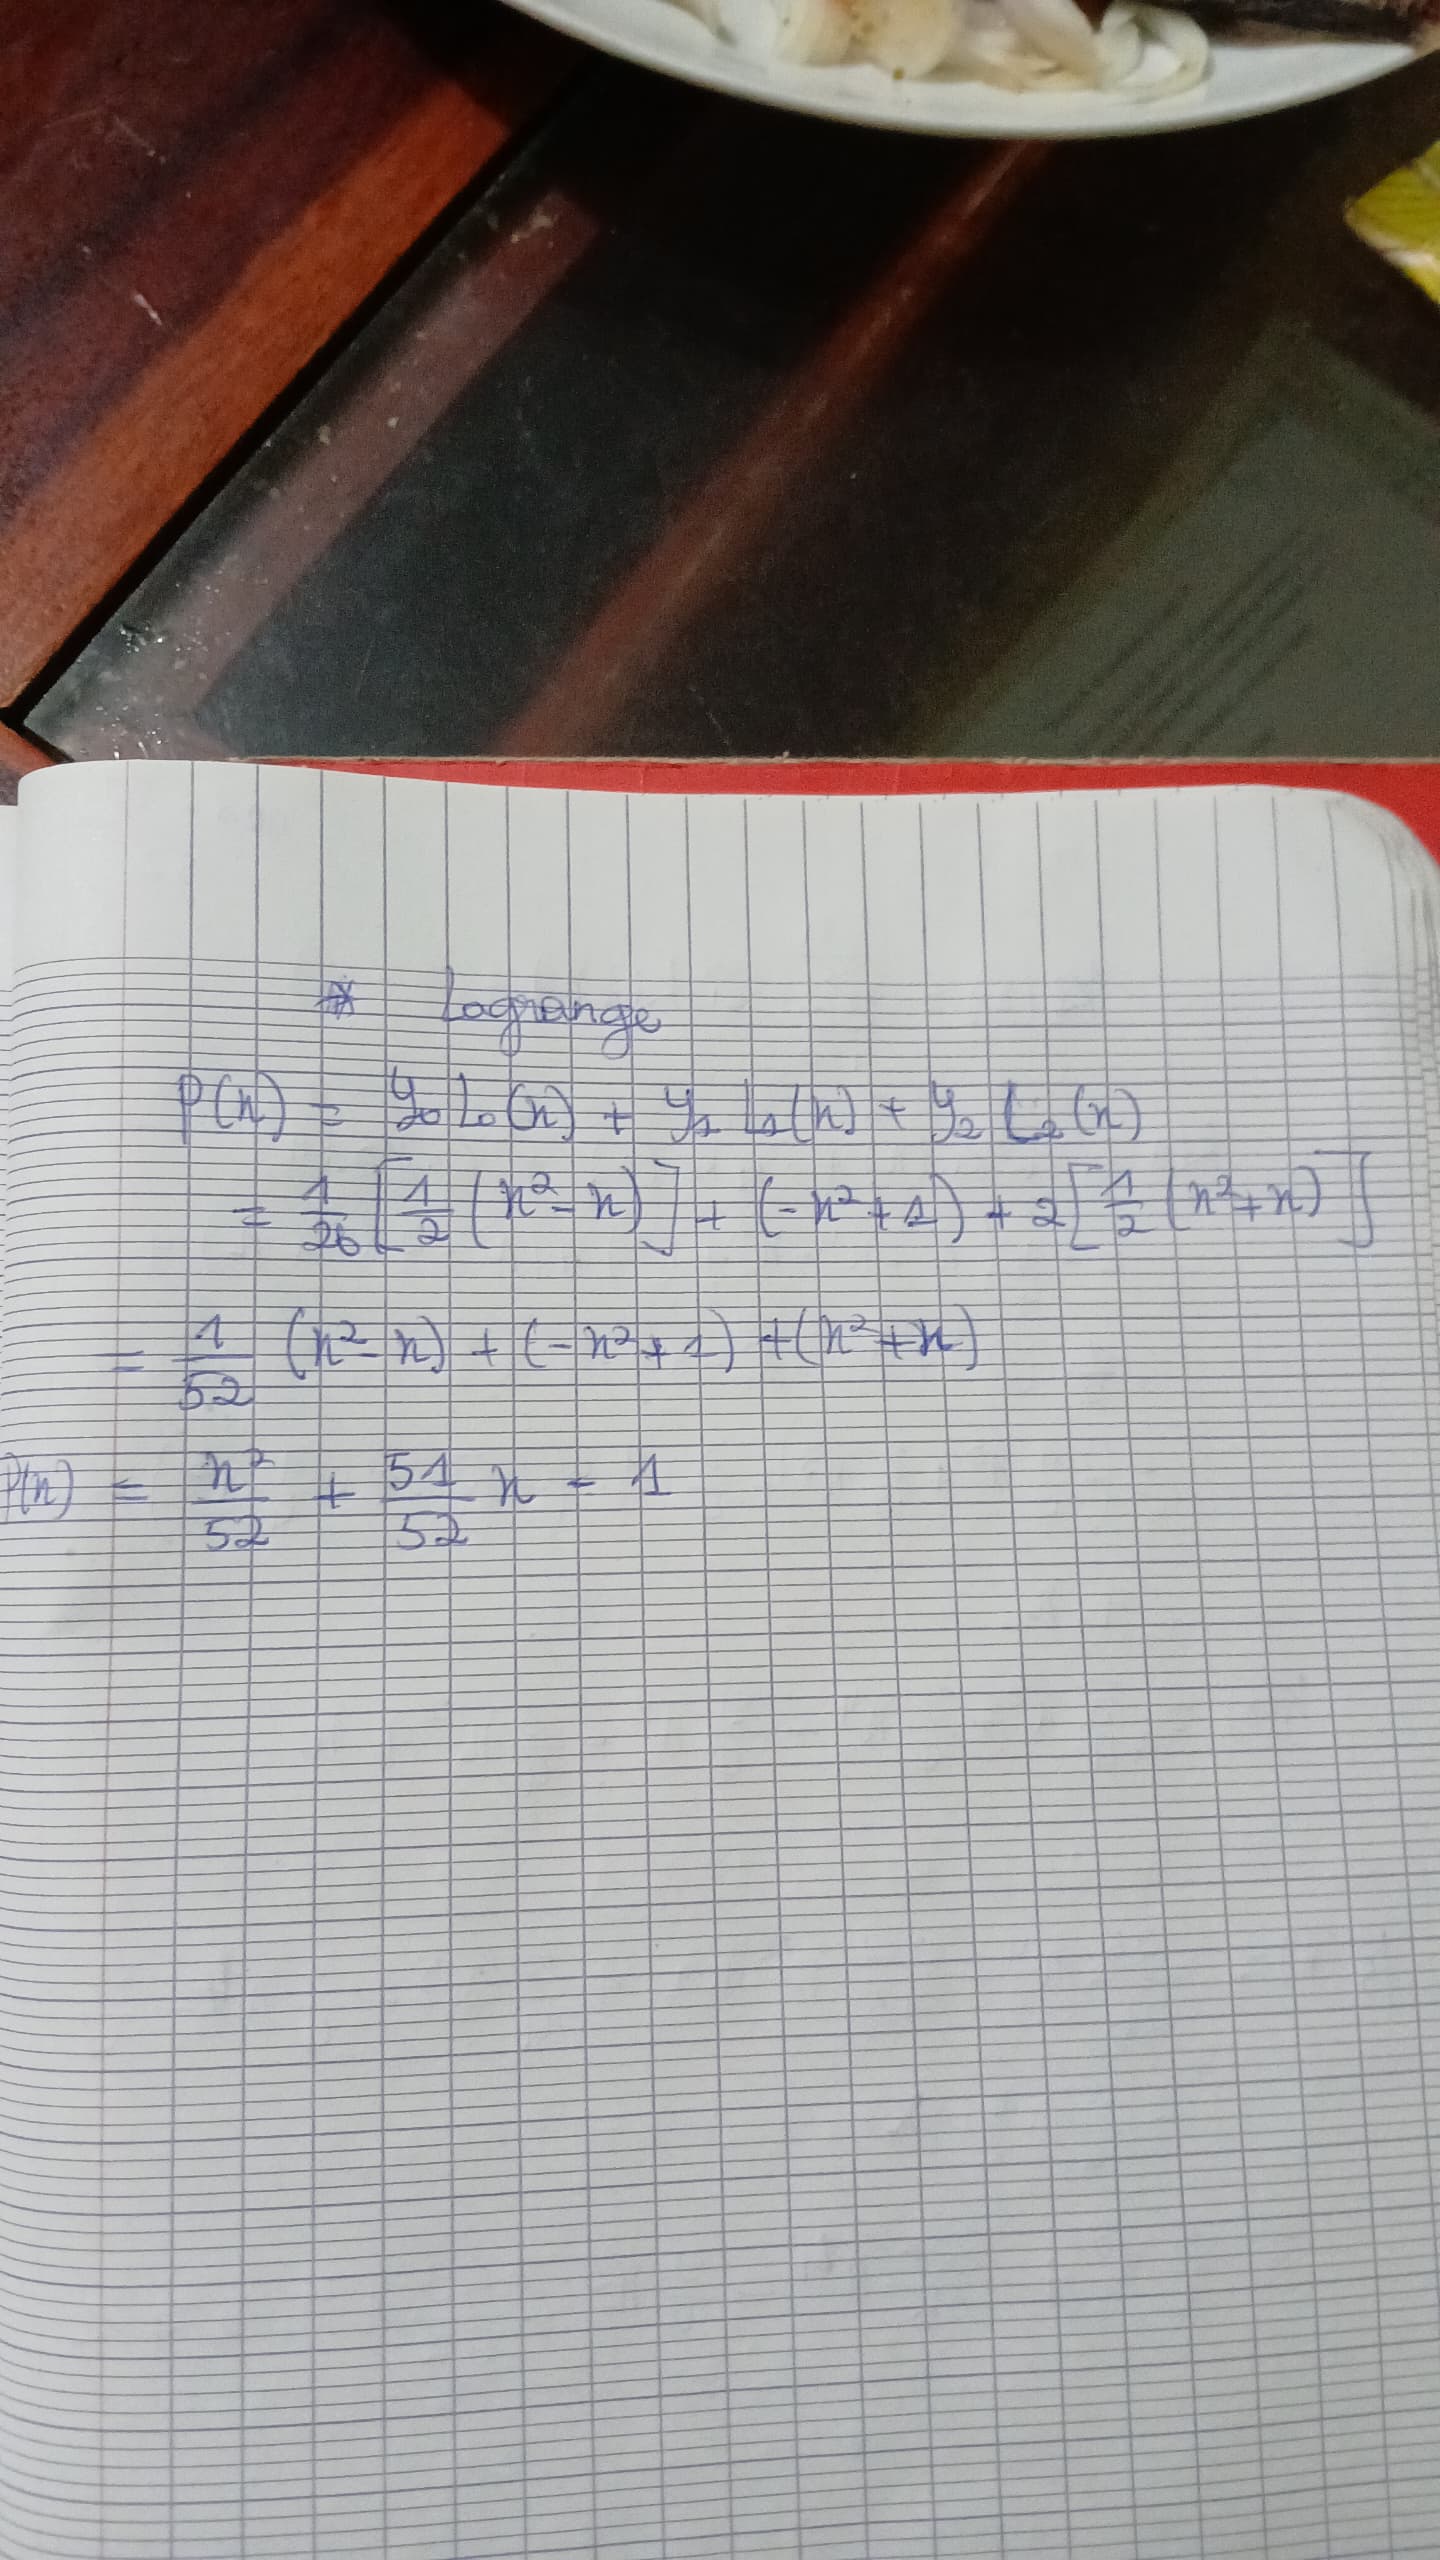 * Lagrange
P(x) = y₀L₀(x) + y₁L₁(x) + y₂L₂(x)
= 1/26 [1/2 (x² - x)] + (-x² + 1) + 2[1/2 (x² + x)]
= 1/52 (x² - x) + (-x² + 1) + (x² + x)
P(x) = x²/52 + 51/52 x - 1